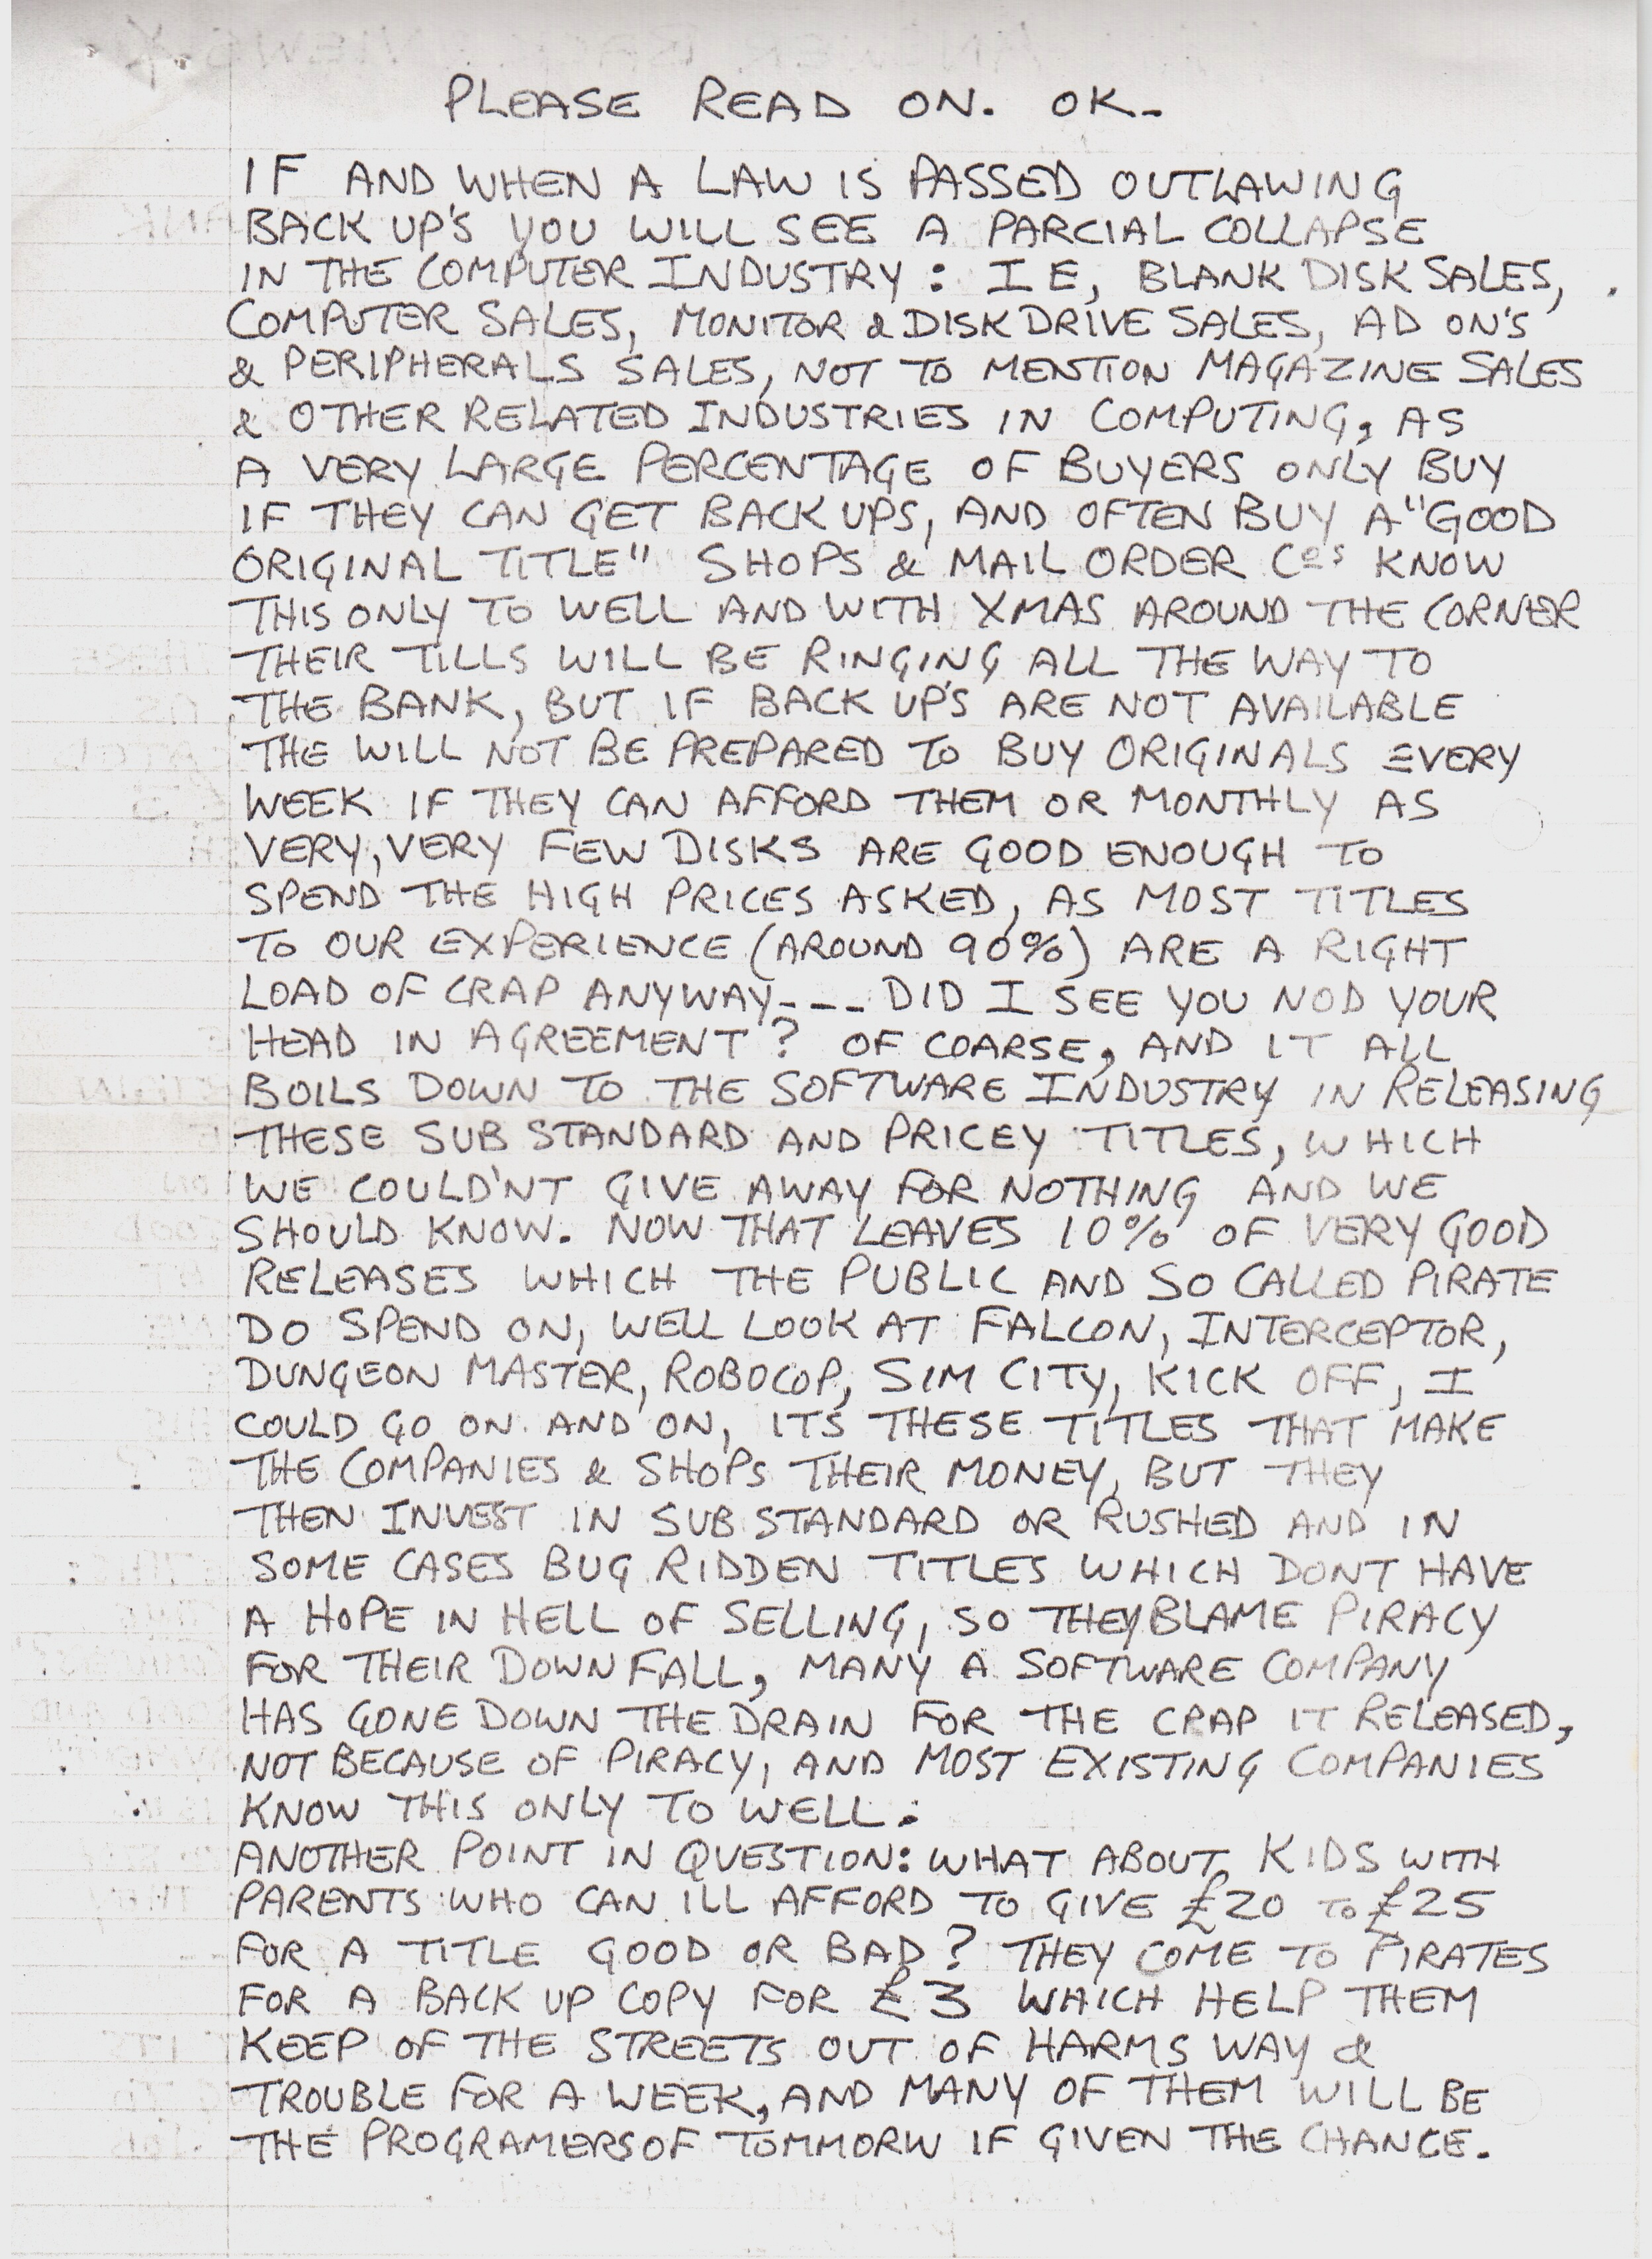 PLEASE READ ON. OK-
IF AND WHEN A LAW IS PASSED OUTLAWING
BACK UP'S YOU WILL SEE A PARCIAL COLLAPSE
IN THE COMPUTER INDUSTRY: IE, BLANK DISK SALES,
COMPUTER SALES, MONITOR & DISK DRIVE SALES, AD ON'S
& PERIPHERALS SALES, NOT TO MENTION MAGAZINE SALES
& OTHER RELATED INDUSTRIES IN COMPUTING, AS
A VERY LARGE PERCENTAGE OF BUYERS ONLY BUY
IF THEY CAN GET BACK UPS, AND OFTEN BUY A "GOOD
ORIGINAL TITLE" SHOPS & MAIL ORDER Cos KNOW
THIS ONLY TO WELL AND WITH XMAS AROUND THE CORNER
THEIR TILLS WILL BE RINGING ALL THE WAY TO
THE BANK, BUT IF BACK UP'S ARE NOT AVAILABLE
THE WILL NOT BE PREPARED TO BUY ORIGINALS EVERY
WEEK IF THEY CAN AFFORD THEM OR MONTHLY AS
VERY, VERY FEW DISKS ARE GOOD ENOUGH TO
SPEND THE HIGH PRICES ASKED, AS MOST TITLES
TO OUR EXPERIENCE (AROUND 90%) ARE A RIGHT
LOAD OF CRAP ANYWAY--- DID I SEE YOU NOD YOUR
HEAD IN AGREEMENT? OF COARSE, AND IT ALL
BOILS DOWN TO THE SOFTWARE INDUSTRY IN RELEASING
THESE SUB STANDARD AND PRICEY TITLES, WHICH
WE COULD'NT GIVE AWAY FOR NOTHING AND WE
SHOULD KNOW. NOW THAT LEAVES 10% OF VERY GOOD
RELEASES WHICH THE PUBLIC AND SO CALLED PIRATE
DO SPEND ON, WELL LOOK AT FALCON, INTERCEPTOR,
DUNGEON MASTER, ROBOCOP, SIM CITY, KICK OFF, I
COULD GO ON AND ON, ITS THESE TITLES THAT MAKE
THE COMPANIES & SHOPS THEIR MONEY, BUT THEY
THEN INVEST IN SUB STANDARD OR RUSHED AND IN
SOME CASES BUG RIDDEN TITLES WHICH DONT HAVE
A HOPE IN HELL OF SELLING, SO THEY BLAME PIRACY
FOR THEIR DOWN FALL, MANY A SOFTWARE COMPANY
HAS GONE DOWN THE DRAIN FOR THE CRAP IT RELEASED,
NOT BECAUSE OF PIRACY, AND MOST EXISTING COMPANIES
KNOW THIS ONLY TO WELL.
ANOTHER POINT IN QUESTION: WHAT ABOUT KIDS WITH
PARENTS WHO CAN ILL AFFORD TO GIVE £20 TO £25
FOR A TITLE GOOD OR BAD? THEY COME TO PIRATES
FOR A BACK UP COPY FOR £3 WHICH HELP THEM
KEEP OF THE STREETS OUT OF HARMS WAY &
TROUBLE FOR A WEEK, AND MANY OF THEM WILL BE
THE PROGRAMERS OF TOMMORW IF GIVEN THE CHANCE.